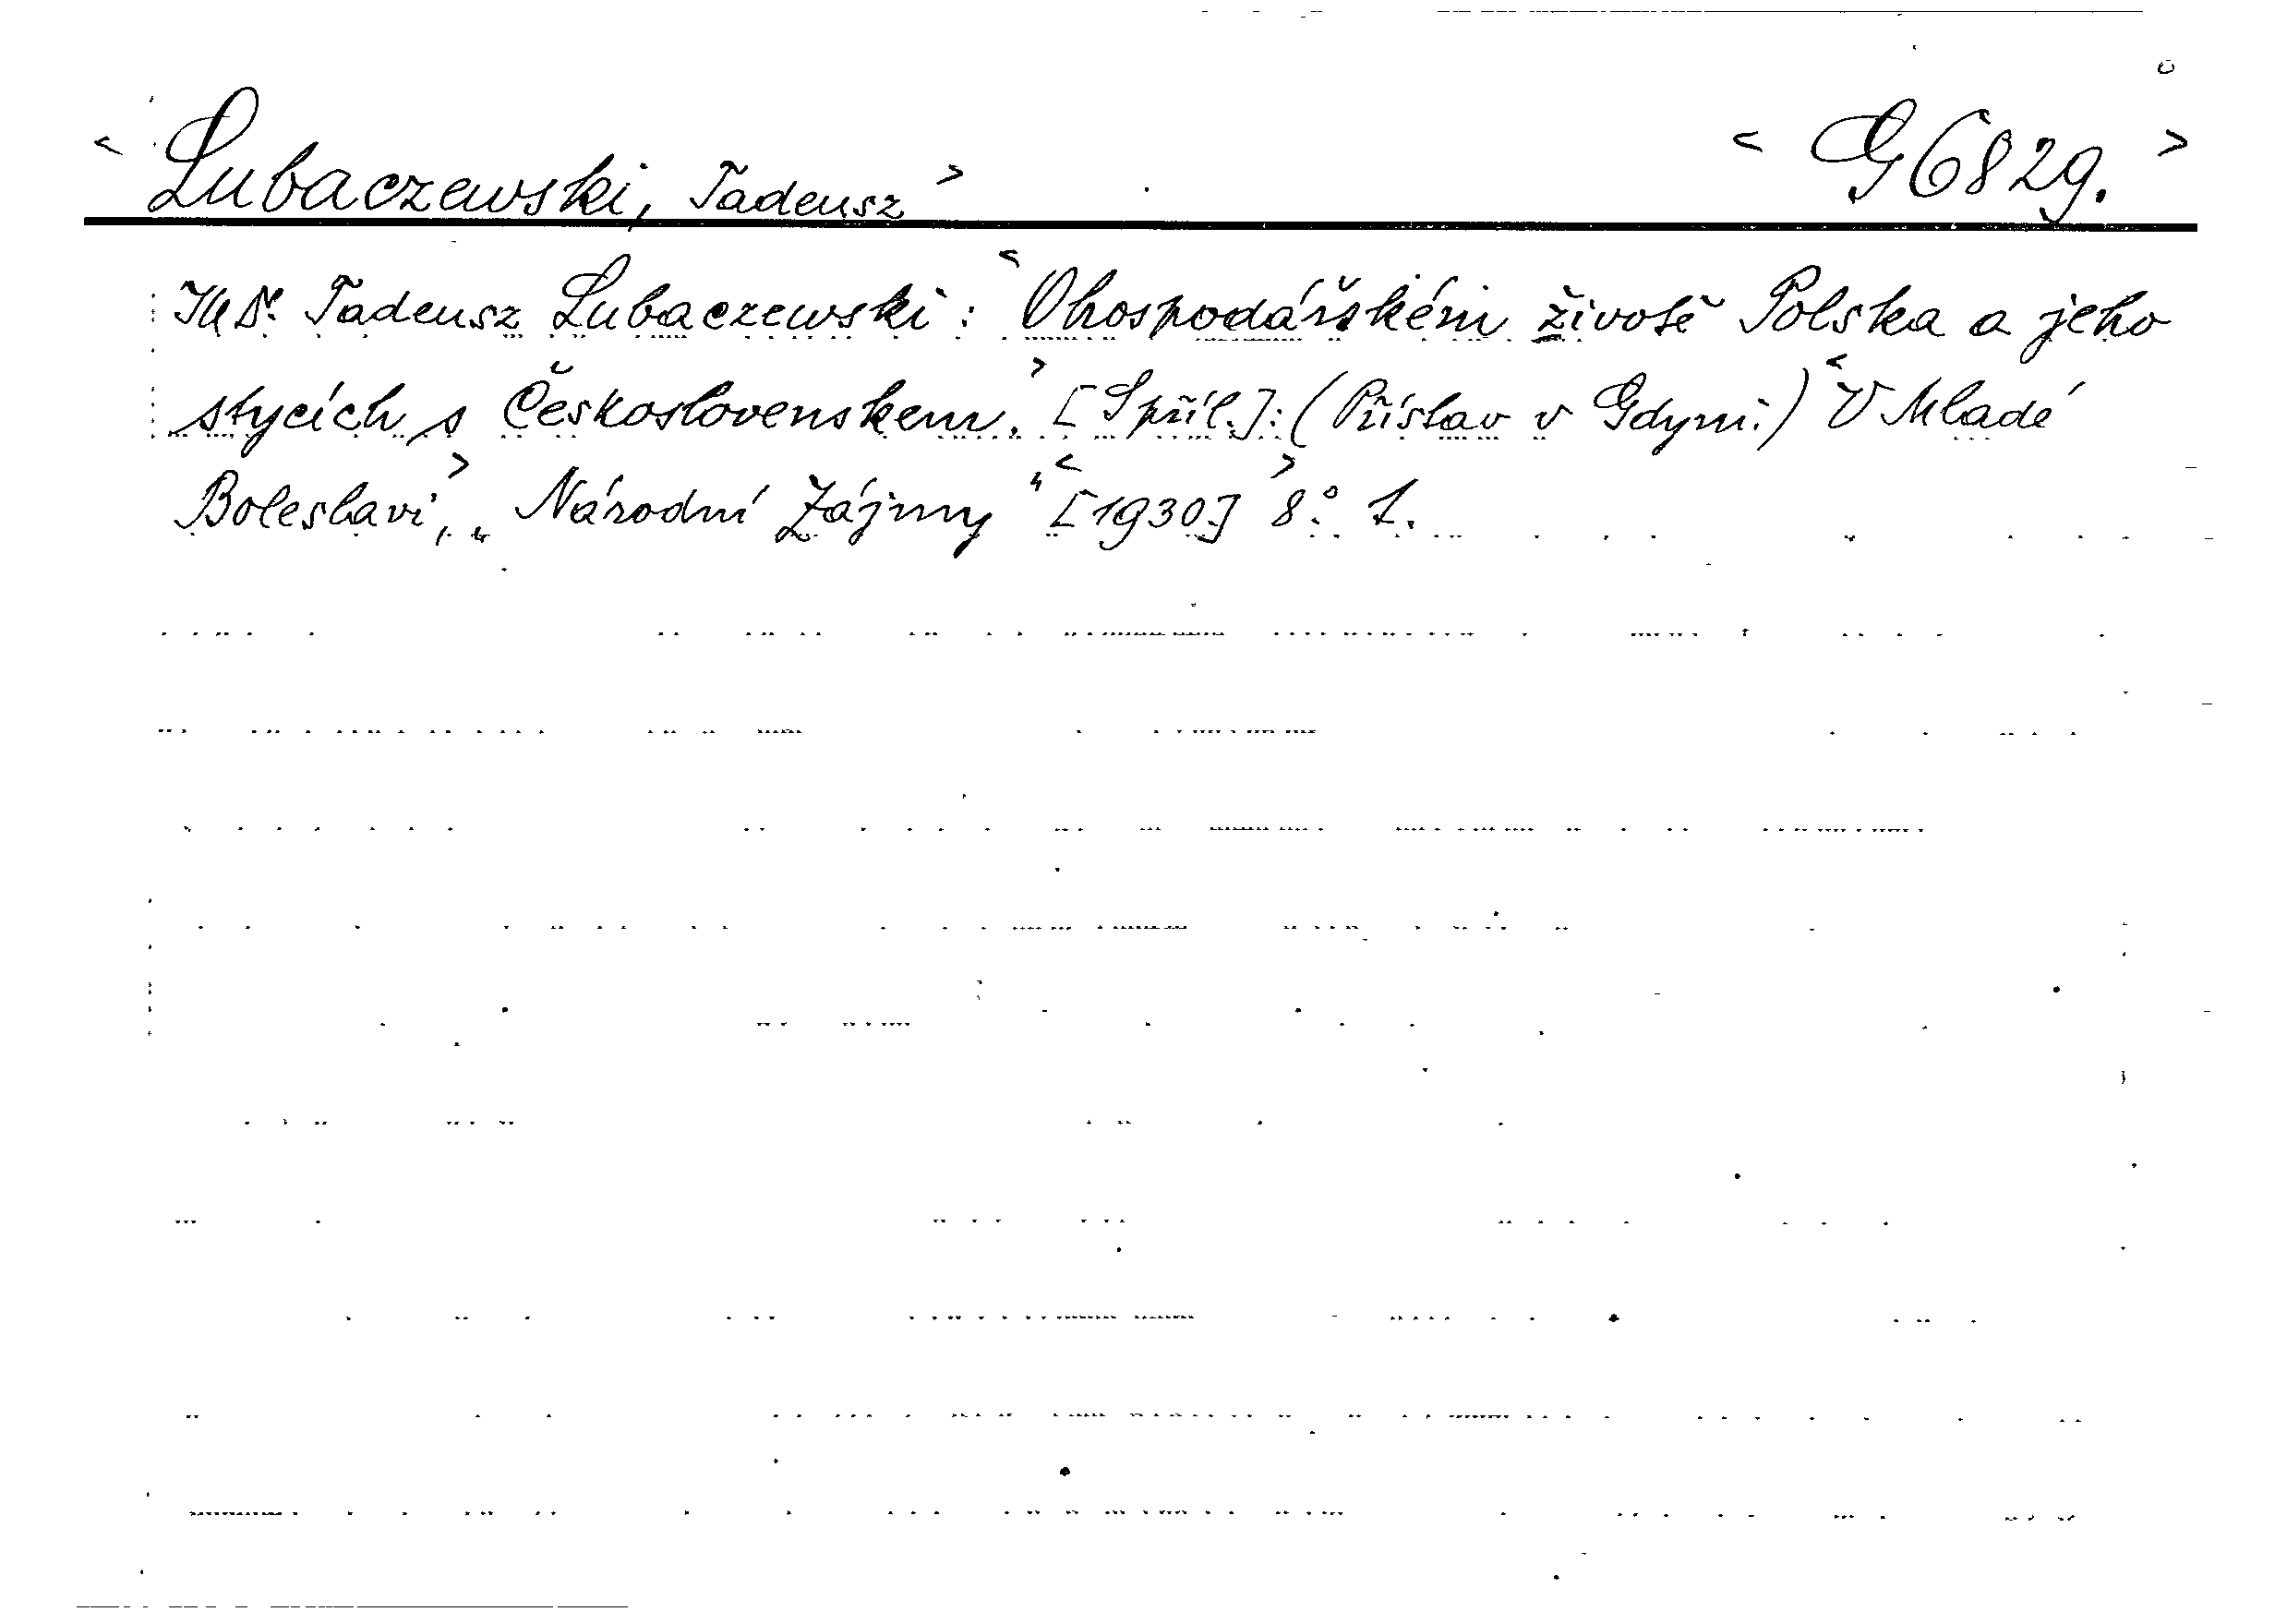 < Lubaczewski, Tadeusz > < G 6829. >
JUDr. Tadeusz Lubaczewski: < O hospodářském životě Polska a jeho
stycích s Československem. > [S příl.]: (Přístav v Gdyni.) < V Mladé
Boleslavi, > „Národní Zájmy“ < [1930] > 8° 1.